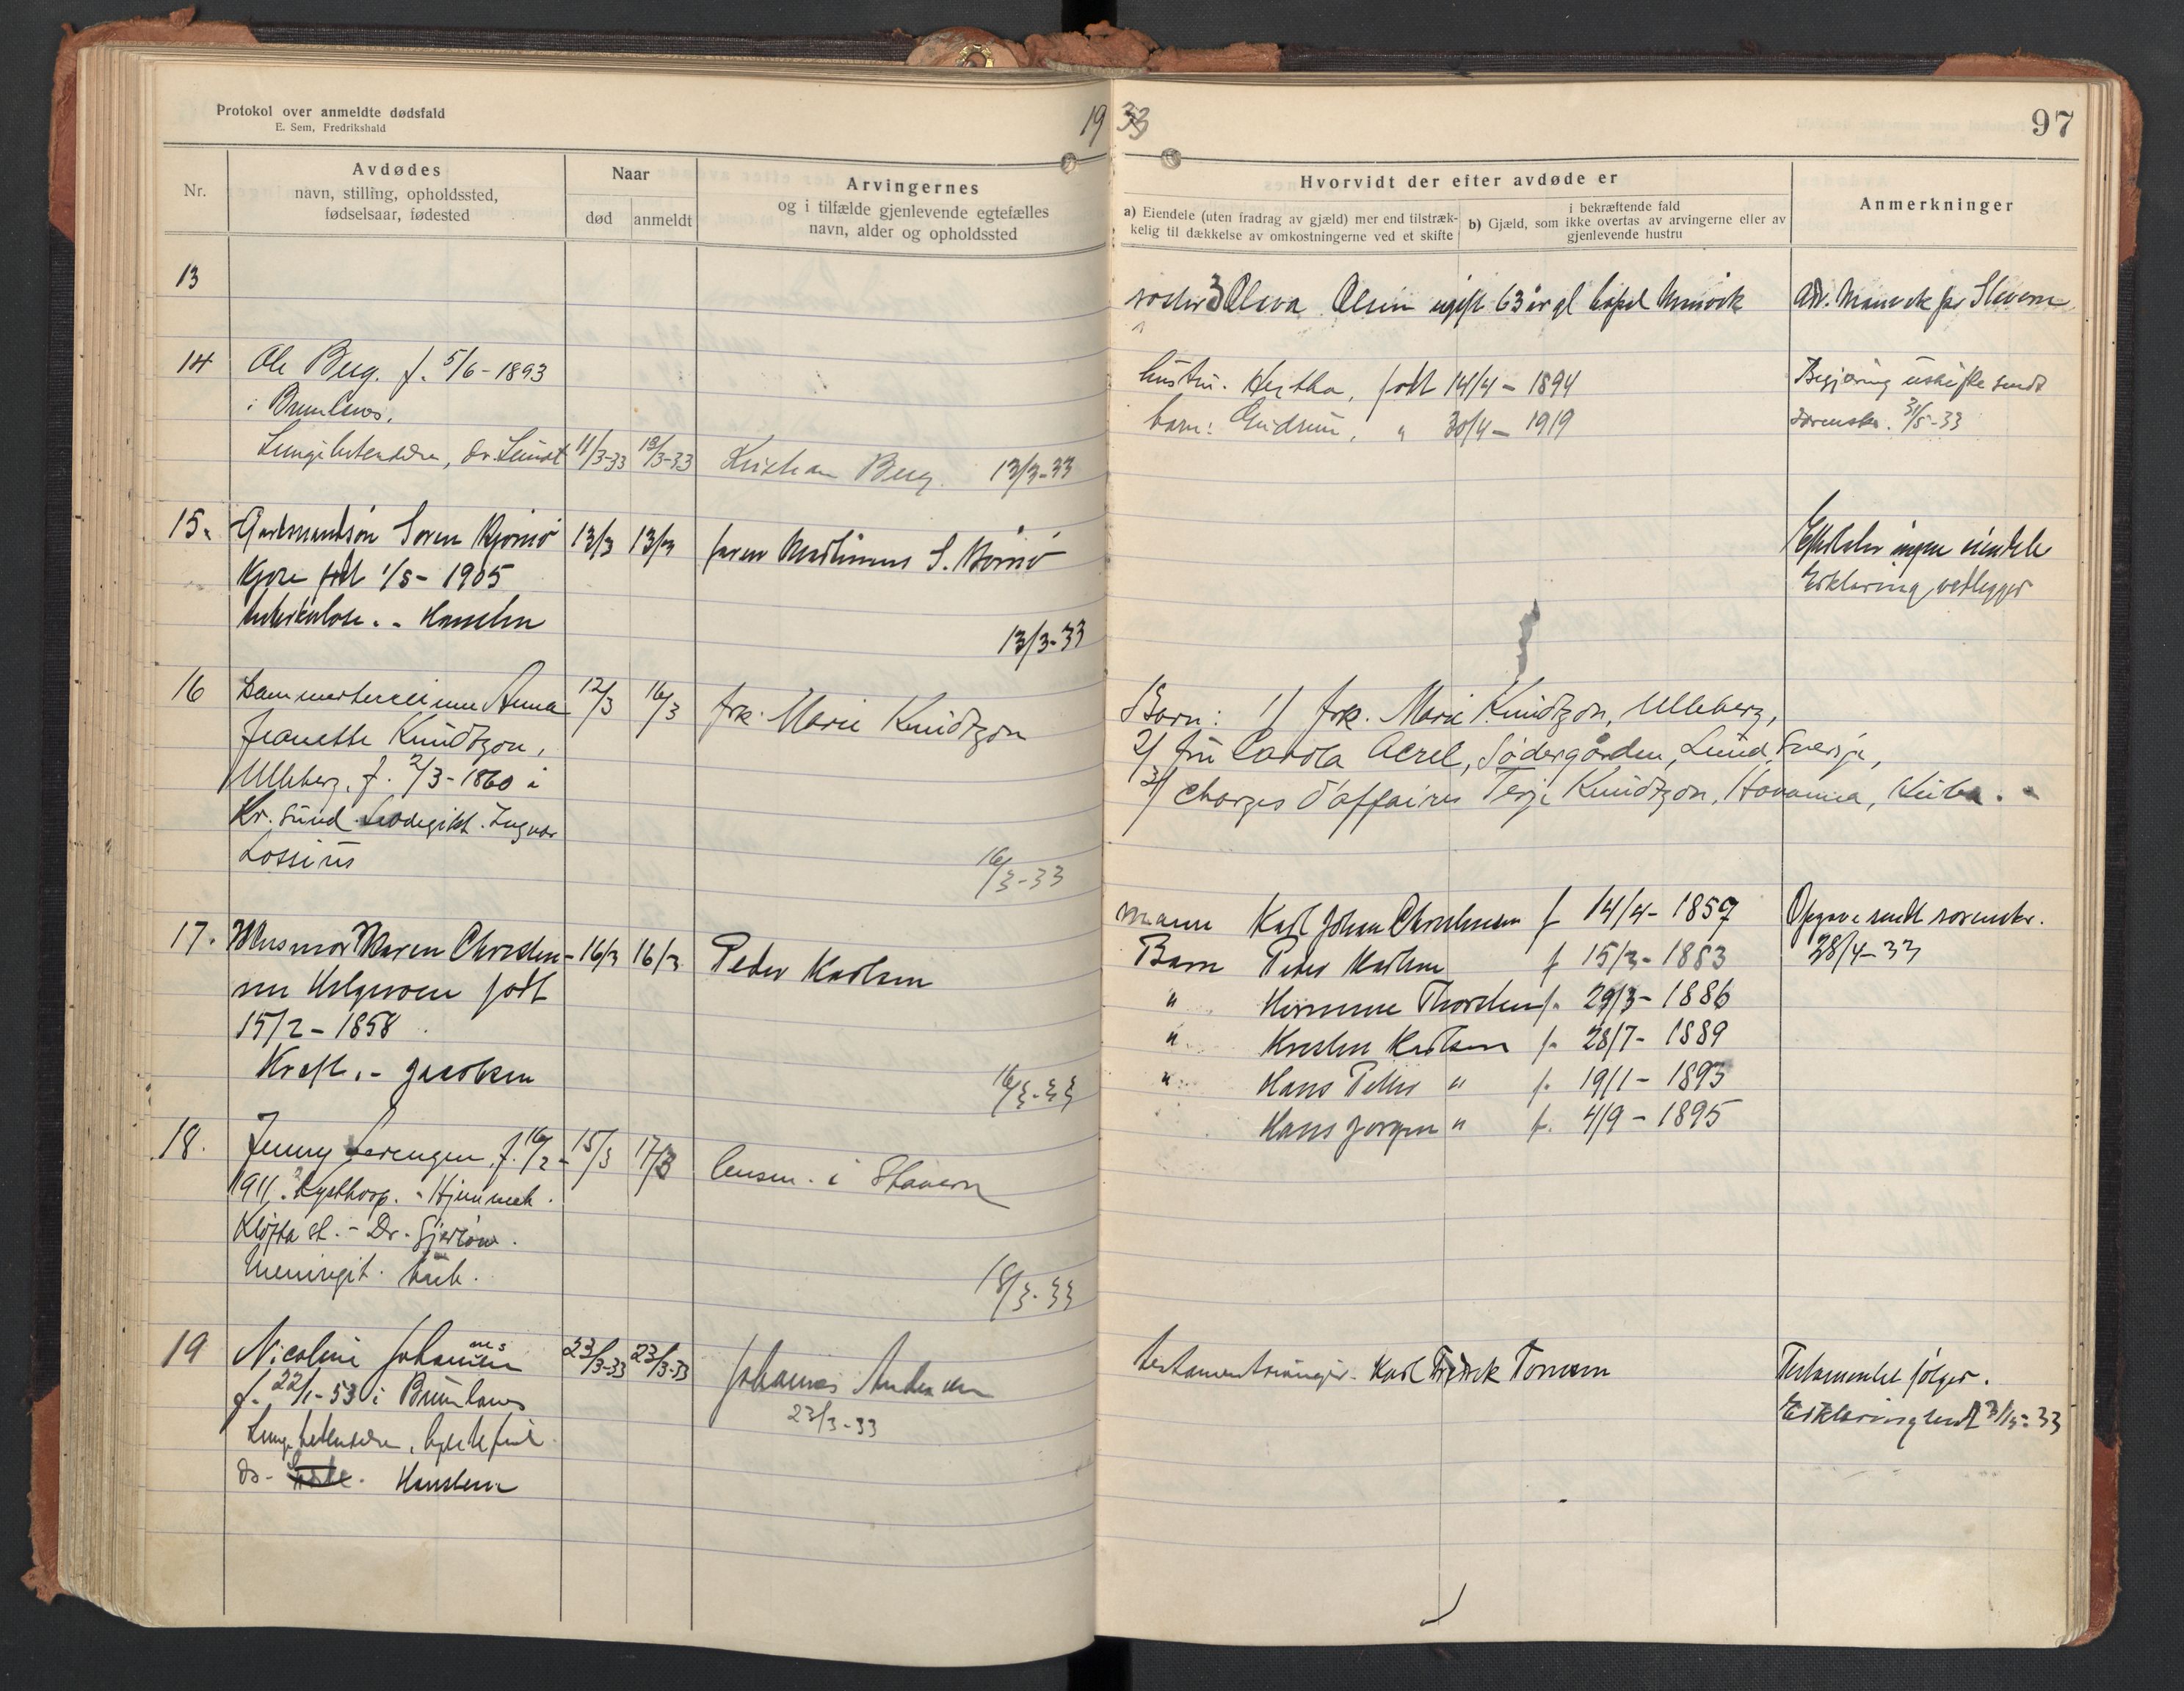 Protokol over anmeldte dødsfald
E. Sem, Fredrikshald
1933
97
Nr.
Avdødes
navn, stilling, opholdssted,
fødselsaar, fødested
Naar
død
anmeldt
Arvingernes
og i tilfælde gjenlevende egtefælles
navn, alder og opholdssted
Hvorvidt der efter avdøde er
a) Eiendele (uten fradrag av gjæld) mer end tilstræk-
kelig til dækkelse av omkostningerne ved et skifte
i bekræftende fald
b) Gjæld, som ikke overtas av arvingerne eller av
gjenlevende hustru
Anmerkninger
13
søster 3 Olava Olsen ugift 63 år gl
14
Ole Berg. f. 5/6-1893
i Brunlanes.
Lungebetendelse, dr. Lundt
11/3-33
13/3-33
Kristian Berg. 13/3-33
hustru. Hertha, født 14/4-1894
barn: Gudrun, " 30/4-1919
Begjæring uskifte sendt
sorenskr. 31/5-33
15.
Gårdmandsøn Søren Bjørnø
Kjøre født 1/5-1905
tuberkulose. - Hanstein
13/3
13/3
faren S. Bjørnø
13/3-33
Efterlot ingen eiendele
Erklæring vedlegges
16
Kammerherreinne Anna
Jeanette Knudtzon,
Ulleberg, f. 2/3-1860 i
Kr.sund. Ingvar
Lossius
12/3
16/3
frk. Marie Knudtzon
16/3-33
Barn: 1/ frk. Marie Knudtzon, Ulleberg,
2/ fru Carola Acrel, Södergården, Lund, Sverige,
3/ charges d'affaires Terje Knudtzon, Havanna, Kuba.
17.
Husmor Maren Christen-
sen Helgeroen født
15/2-1858
Kreft. - Jacobsen
16/3
16/3
Peder Karlsen
16/3-33
mann Karl Johan Christensen f 14/4-1859
Barn Peder Karlsen f 15/3-1883
" Thorsten f. 29/3-1886
" Kristen Karlsen f. 28/7-1889
" Hans Petter " f. 19/1-1893
Hans Jørgen " f. 4/9-1895
Opgave sendt sorenskr.
28/4-33
18.
Jenny f. 16/2-
1911. Kysthosp. - Hjemmeh.
Kløfta st. - Dr. Gjerløw.
Meningit. tub.
15/3
17/3
lensm. i Stavern
18/3-33
19
Nicoline Johannes
f. 22/1-53 i Brunlanes
Lungebetendelse, hjertefeil
dr. Hanstein
23/3-33
23/3-33
Johannes Andersen
23/3-33
testamentsarvinger. Karl Fredrik
Testamentet følger.
Erklæring sendt 31/5-33